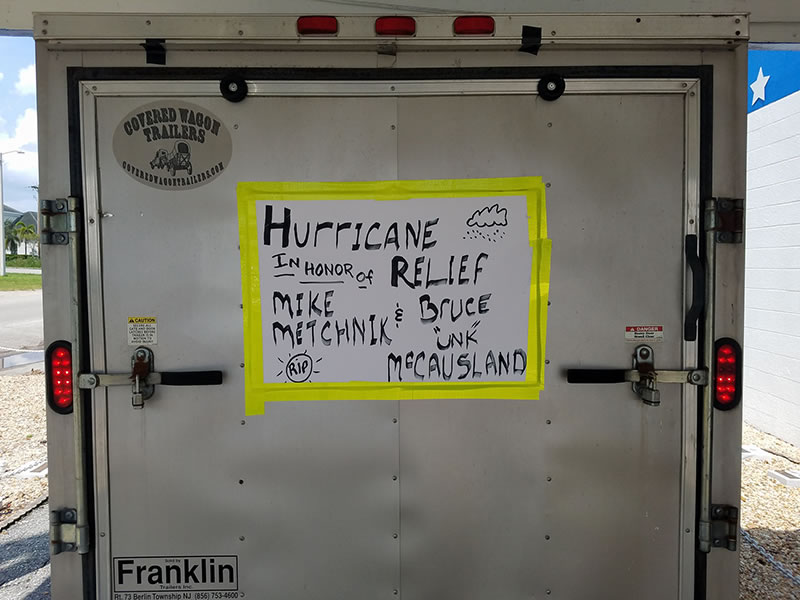 COVERED WAGON
TRAILERS
COVEREDWAGONTRAILERS.COM
HURRICANE
IN HONOR of RELIEF
MIKE & BRUCE
METCHNIK "UNK"
RIP McCAUSLAND
CAUTION
DANGER
Franklin
Trailers Inc.
Rt. 73 Berlin Township NJ (856) 753-4600